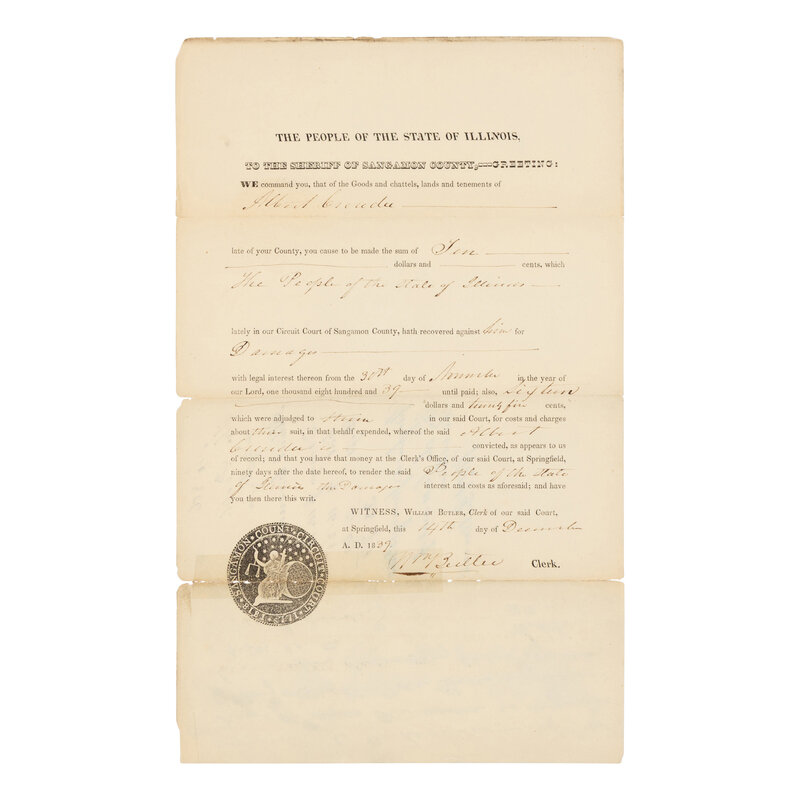 THE PEOPLE OF THE STATE OF ILLINOIS,
TO THE SHERIFF OF SANGAMON COUNTY,—GREETING:
WE command you, that of the Goods and chattels, lands and tenements of
Albert Crowder
late of your County, you cause to be made the sum of Ten
dollars and cents, which
The People of the State of Illinois
lately in our Circuit Court of Sangamon County, hath recovered against him for
Damages
with legal interest thereon from the 30th day of November in the year of
our Lord, one thousand eight hundred and 39 until paid; also, Sixteen
dollars and twenty five cents,
which were adjudged to in our said Court, for costs and charges
about their suit, in that behalf expended, whereof the said Albert
Crowder is convicted, as appears to us
of record; and that you have that money at the Clerk's Office, of our said Court, at Springfield,
ninety days after the date hereof, to render the said People of the State
of Illinois the Damages interest and costs as aforesaid; and have
you then there this writ.
WITNESS, WILLIAM BUTLER, Clerk of our said Court,
at Springfield, this 14th day of December
A. D. 1839
Wm Butler Clerk.
SANGAMON COUNTY CIRCUIT COURT